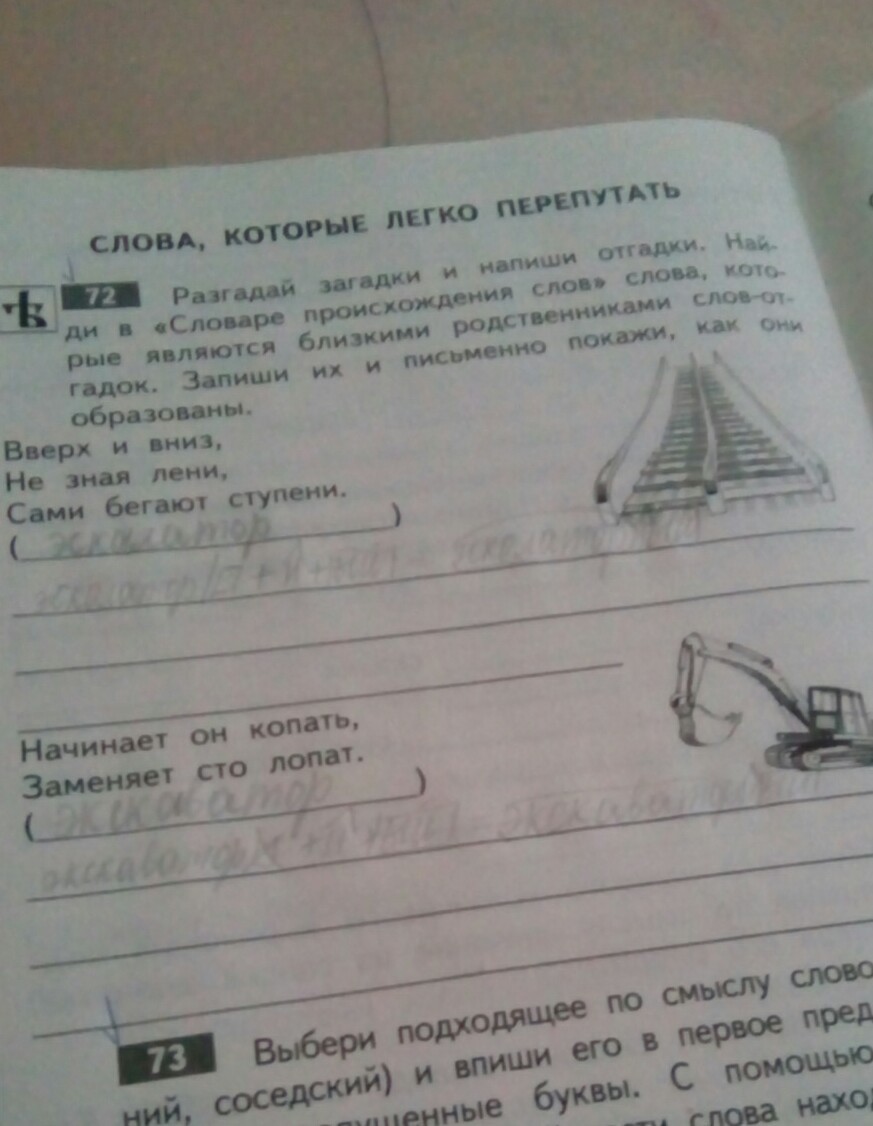 СЛОВА, КОТОРЫЕ ЛЕГКО ПЕРЕПУТАТЬ
Ѣ 72 Разгадай загадки и напиши отгадки. Най-
ди в «Словаре происхождения слов» слова, кото-
рые являются близкими родственниками слов-от-
гадок. Запиши их и письменно покажи, как они
образованы.
Вверх и вниз,
Не зная лени,
Сами бегают ступени.
( эскалатор )
Начинает он копать,
Заменяет сто лопат.
( экскаватор )
73 Выбери подходящее по смыслу слово
ний, соседский) и впиши его в первое пред
буквы. С помощью
слова наход